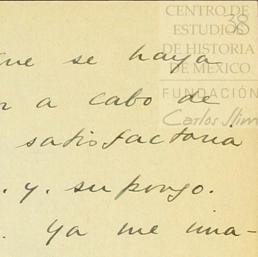 CENTRO DE
ESTUDIOS
DE HISTORIA
DE MEXICO
FUNDACIÓN
Carlos Slim
38
que se haya
a cabo de
satisfactoria
. y. supongo.
. ya me ima-